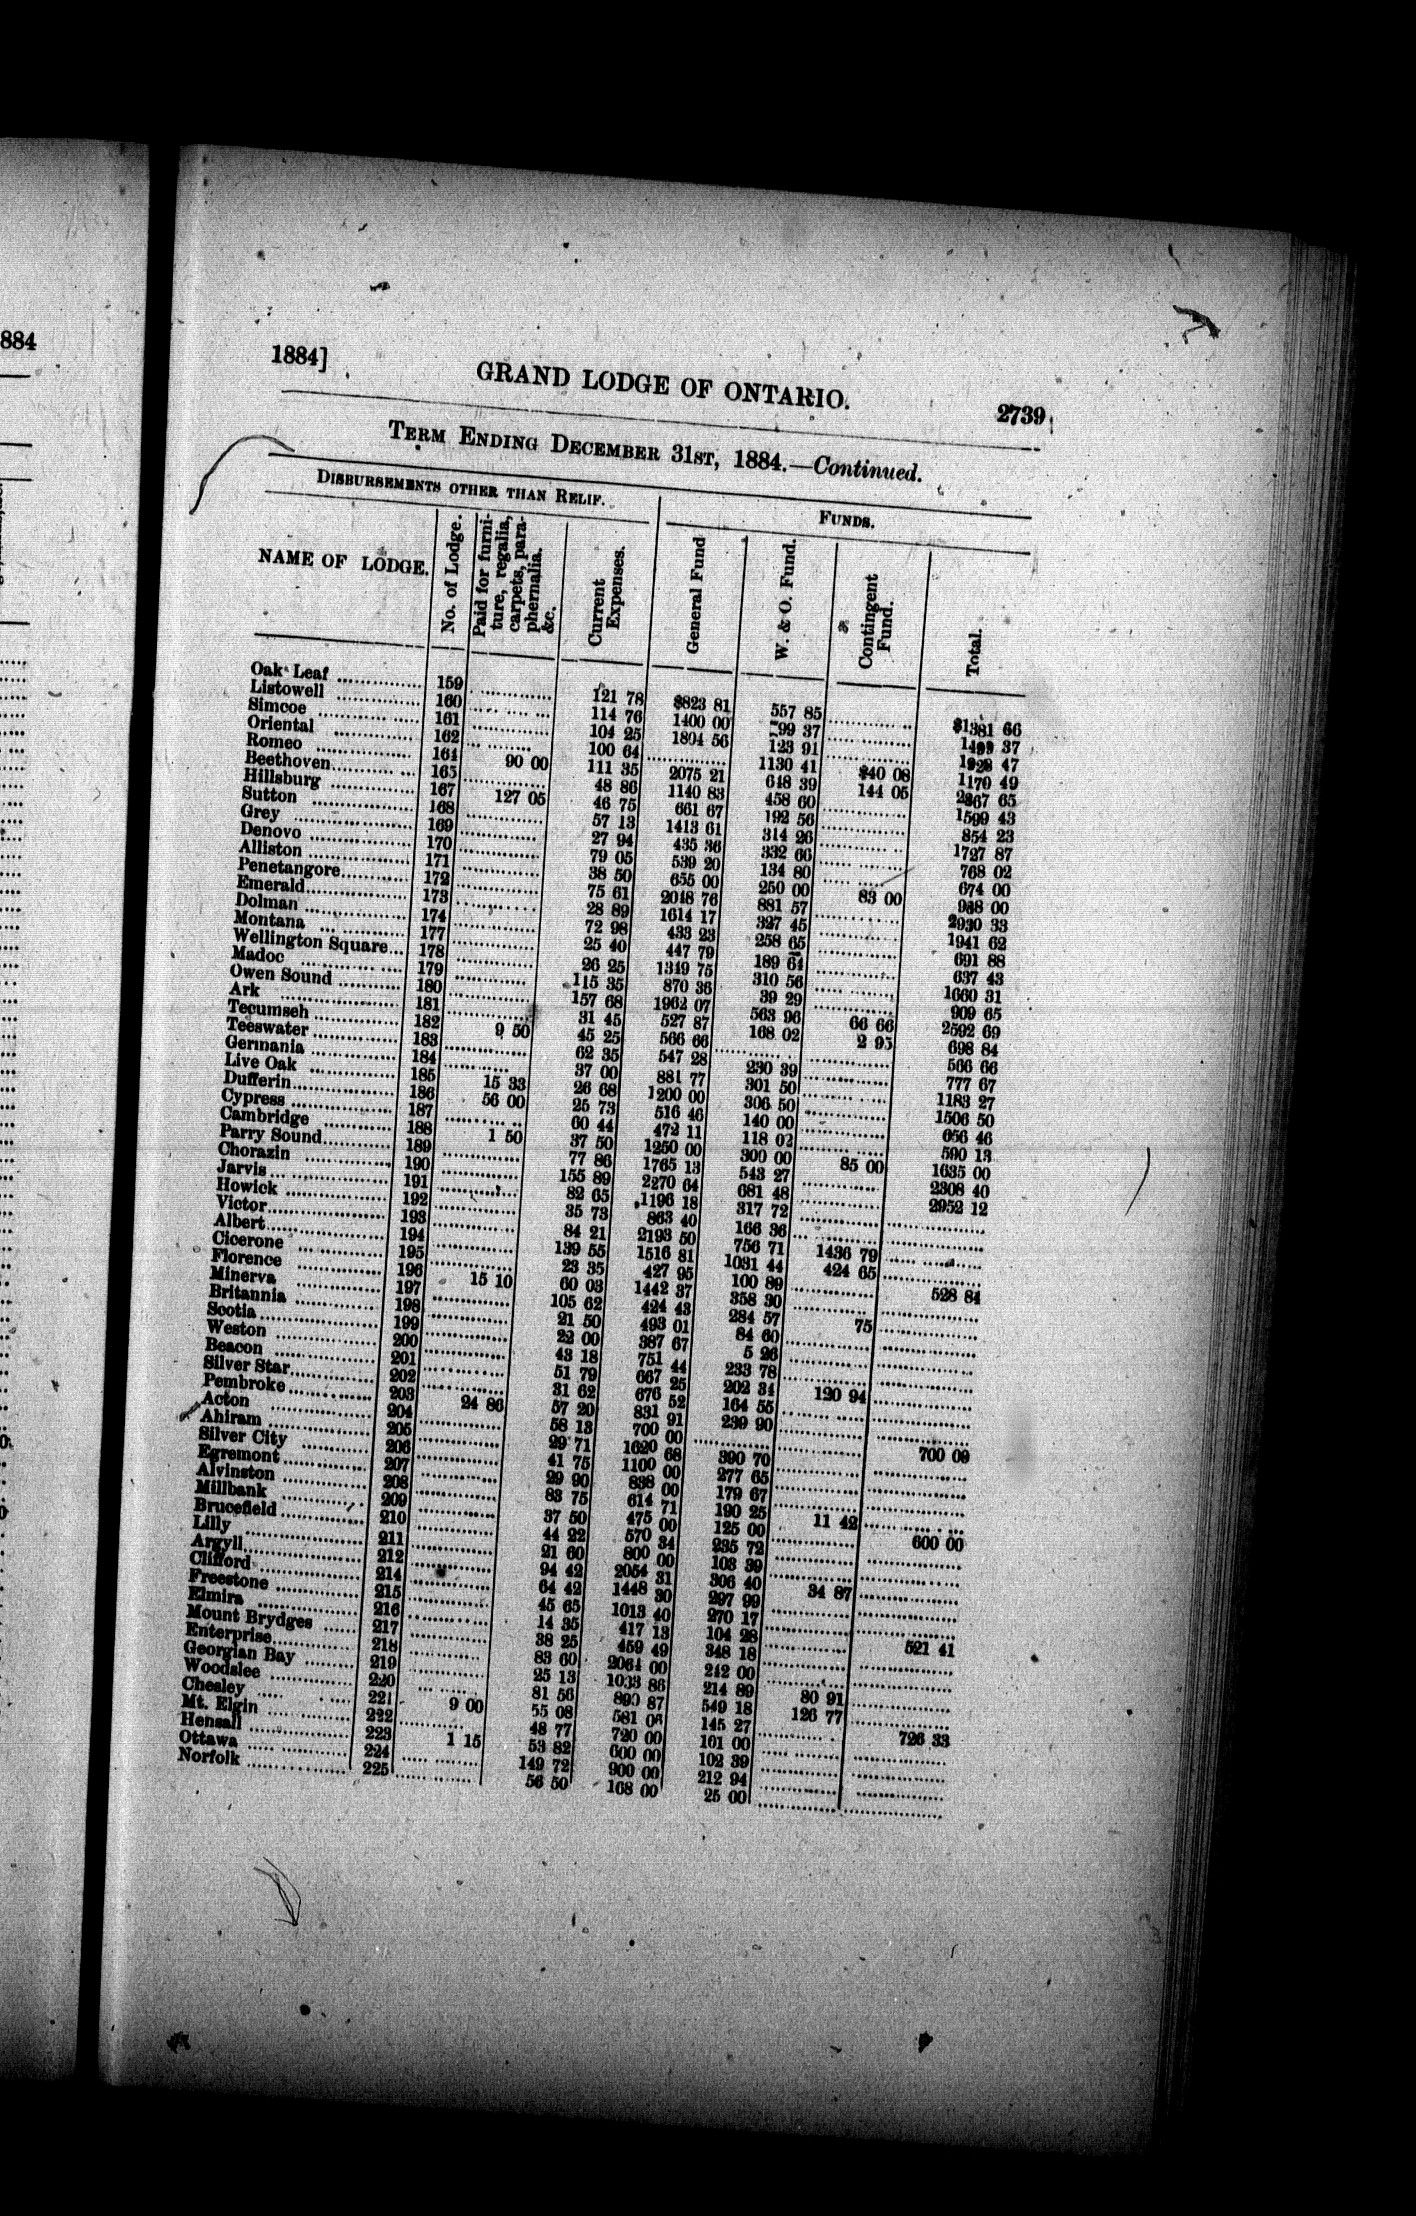 884
1884] GRAND LODGE OF ONTARIO. 2739
TERM ENDING DECEMBER 31ST, 1884.—Continued.
DISBURSEMENTS OTHER THAN RELIF. FUNDS.
NAME OF LODGE. No. of Lodge. Paid for furniture, regalia, carpets, paraphernalia. &c. Current Expenses. General Fund W. & O. Fund. Contingent Fund. Total.
Oak Leaf 159 121 78 $823 81 557 85 $1381 66
Listowell 160 114 76 1400 00 99 37 1499 37
Simcoe 161 104 25 1804 56 123 91 1928 47
Oriental 162 100 64 1130 41 $40 08 1170 49
Romeo 164 90 00 111 35 2075 21 648 39 144 05 2867 65
Beethoven 165 48 86 1140 83 458 60 1599 43
Hillsburg 167 127 05 46 75 661 67 192 56 854 23
Sutton 168 57 13 1413 61 314 26 1727 87
Grey 169 27 94 435 36 332 66 768 02
Denovo 170 79 05 539 20 134 80 674 00
Alliston 171 38 50 655 00 250 00 83 00 988 00
Penetangore 172 75 61 2048 76 881 57 2930 33
Emerald 173 28 89 1614 17 327 45 1941 62
Dolman 174 72 98 433 23 258 65 691 88
Montana 177 25 40 447 79 189 64 637 43
Wellington Square 178 26 25 1349 75 310 56 1660 31
Madoc 179 115 35 870 36 39 29 909 65
Owen Sound 180 157 68 1962 07 563 96 66 66 2592 69
Ark 181 31 45 527 87 168 02 2 95 698 84
Tecumseh 182 9 50 45 25 566 66 566 66
Teeswater 183 62 35 547 28 230 39 777 67
Germania 184 37 00 881 77 301 50 1183 27
Live Oak 185 15 33 26 68 1200 00 306 50 1506 50
Dufferin 186 56 00 25 73 516 46 140 00 656 46
Cypress 187 60 44 472 11 118 02 590 13
Cambridge 188 1 50 37 50 1250 00 300 00 85 00 1635 00
Parry Sound 189 77 86 1765 13 543 27 2308 40
Chorazin 190 155 89 2270 64 681 48 2952 12
Jarvis 191 82 65 1196 18 317 72
Howick 192 35 73 863 40 166 36
Victor 193 84 21 2193 50 756 71 1436 79
Albert 194 139 55 1516 81 1031 44 424 65
Cicerone 195 23 35 427 95 100 89 528 84
Florence 196 15 10 60 03 1442 37 358 30
Minerva 197 105 62 424 43 284 57 75
Britannia 198 21 50 493 01 84 60
Scotia 199 22 00 387 67 5 26
Weston 200 43 18 751 44 233 78
Beacon 201 51 79 667 25 202 34 120 94
Silver Star 202 31 62 676 52 164 55
Pembroke 203 24 86 57 20 831 91 239 90
Acton 204 58 13 700 00 700 00
Ahiram 205 29 71 1620 68 390 70
Silver City 206 41 75 1100 00 277 65
Egremont 207 29 90 838 00 179 67
Alvinston 208 83 75 614 71 190 25 11 42
Millbank 209 37 50 475 00 125 00 600 00
Brucefield 210 44 22 570 34 235 72
Lilly 211 21 60 800 00 108 39
Argyll 212 94 42 2054 31 306 40 34 87
Clifford 214 64 42 1448 30 297 99
Freestone 215 45 65 1013 40 270 17
Elmira 216 14 35 417 13 104 28 521 41
Mount Brydges 217 38 25 459 49 348 18
Enterprise 218 83 60 2064 00 242 00
Georgian Bay 219 25 13 1033 86 214 89 80 91
Woodslee 220 81 56 890 87 549 18 126 77
Chesley 221 9 00 55 08 581 06 145 27 726 33
Mt. Elgin 222 48 77 720 00 101 00
Hensall 223 1 15 53 82 600 00 102 39
Ottawa 224 149 72 900 00 212 94
Norfolk 225 56 50 168 00 25 00